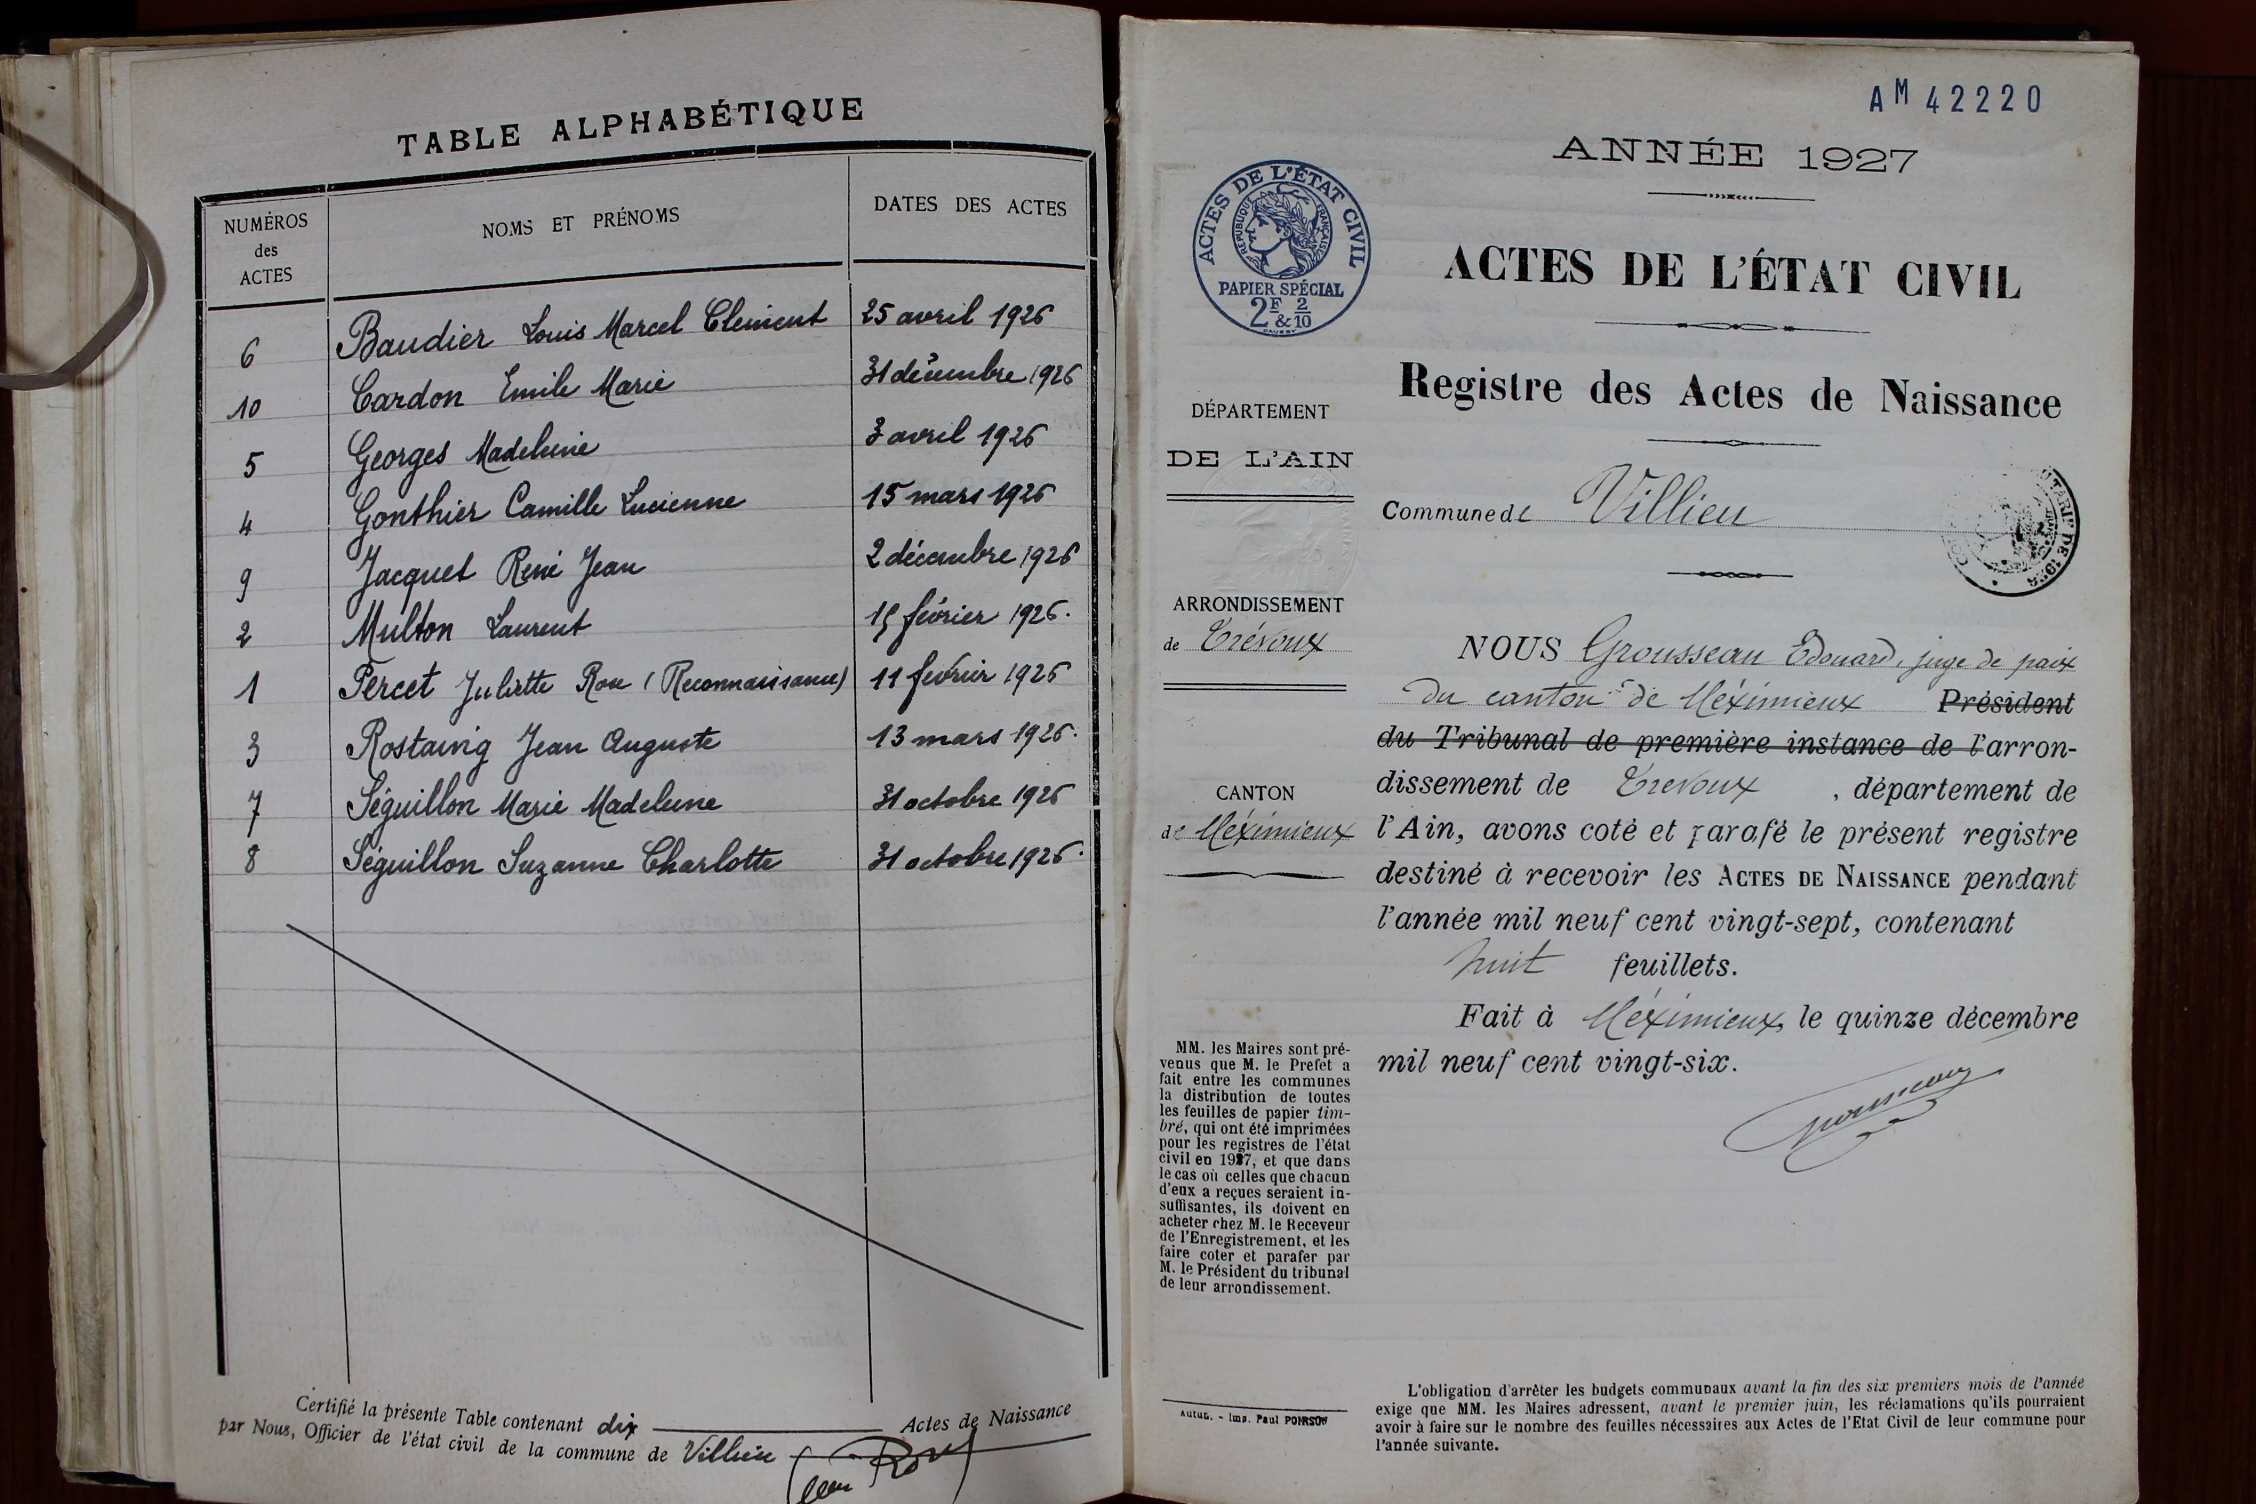 TABLE ALPHABÉTIQUE
NUMÉROS des ACTES
NOMS ET PRÉNOMS
DATES DES ACTES
6 Baudier Louis Marcel Clément 25 avril 1926
10 Cardon Emile Marie 31 décembre 1926
5 Georges Madeleine 3 avril 1926
4 Gonthier Camille Lucienne 15 mars 1926
9 Jacquet René Jean 2 décembre 1926
2 Multon Laurent 15 février 1926.
1 Percet Juliette Rose (Reconnaissance) 11 février 1926
3 Rostaing Jean Auguste 13 mars 1926.
7 Séguillon Marie Madeleine 31 octobre 1926
8 Séguillon Suzanne Charlotte 31 octobre 1926.
Certifié la présente Table contenant dix Actes de Naissance
par Nous, Officier de l'état civil de la commune de Villieu
AM 42220
ANNÉE 1927
ACTES DE L'ÉTAT CIVIL
RÉPUBLIQUE FRANÇAISE
PAPIER SPÉCIAL
2F & 2/10
ACTES DE L'ÉTAT CIVIL
Registre des Actes de Naissance
DÉPARTEMENT
DE L'AIN
Commune de Villieu
ARRONDISSEMENT
de Trévoux
CANTON
de Méximieux
NOUS Grousseau Edouard, juge de paix
du canton de Méximieux Président
du Tribunal de première instance de l'arron-
dissement de Trevoux, département de
l'Ain, avons coté et parafé le présent registre
destiné à recevoir les ACTES DE NAISSANCE pendant
l'année mil neuf cent vingt-sept, contenant
huit feuillets.
Fait à Méximieux, le quinze décembre
mil neuf cent vingt-six.
MM. les Maires sont pré-
venus que M. le Prefet a
fait entre les communes
la distribution de toutes
les feuilles de papier tim-
bré, qui ont été imprimées
pour les registres de l'état
civil en 1927, et que dans
le cas où celles que chacun
d'eux a reçues seraient in-
suffisantes, ils doivent en
acheter chez M. le Receveur
de l'Enregistrement, et les
faire coter et parafer par
M. le Président du tribunal
de leur arrondissement.
Autun. - Imp. Paul POIRSON
L'obligation d'arrêter les budgets communaux avant la fin des six premiers mois de l'année
exige que MM. les Maires adressent, avant le premier juin, les réclamations qu'ils pourraient
avoir à faire sur le nombre des feuilles nécessaires aux Actes de l'Etat Civil de leur commune pour
l'année suivante.